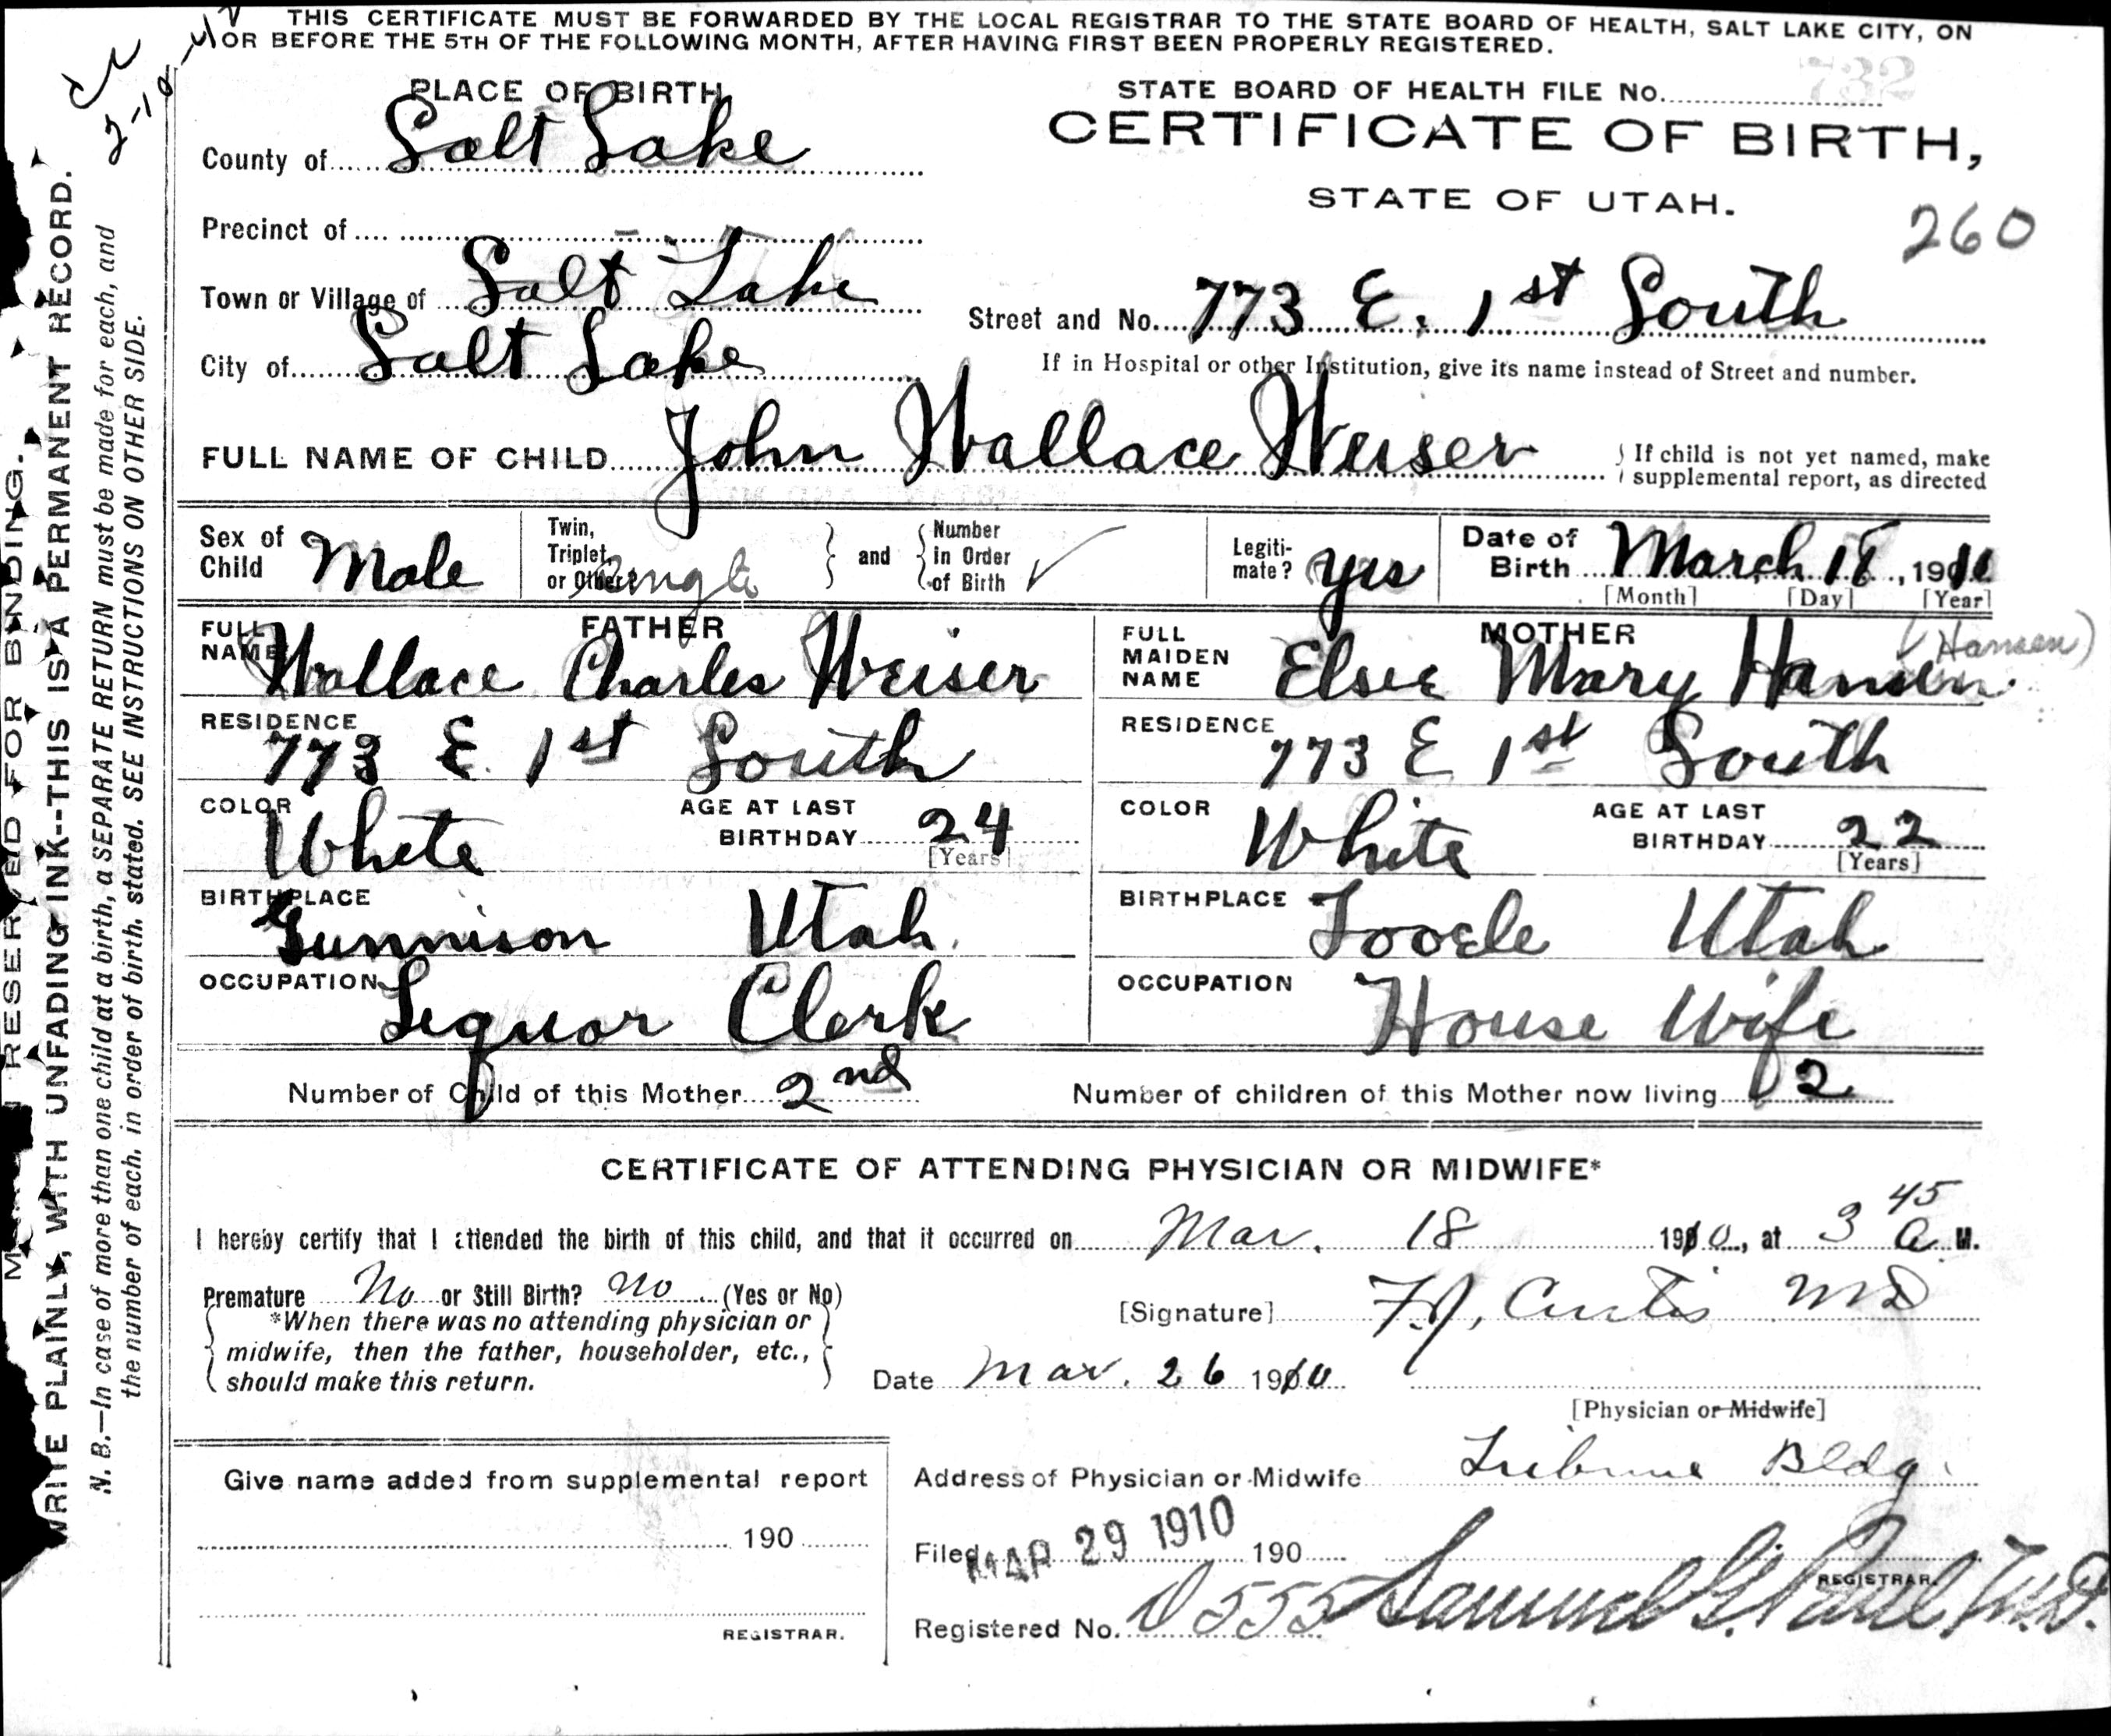 THIS CERTIFICATE MUST BE FORWARDED BY THE LOCAL REGISTRAR TO THE STATE BOARD OF HEALTH, SALT LAKE CITY, ON
OR BEFORE THE 5TH OF THE FOLLOWING MONTH, AFTER HAVING FIRST BEEN PROPERLY REGISTERED.
PLACE OF BIRTH
STATE BOARD OF HEALTH FILE No. 732
CERTIFICATE OF BIRTH,
STATE OF UTAH.
260
County of Salt Lake
Precinct of
Town or Village of Salt Lake
Street and No. 773 E. 1st South
City of Salt Lake
If in Hospital or other Institution, give its name instead of Street and number.
FULL NAME OF CHILD John Wallace Weiser
If child is not yet named, make
supplemental report, as directed
Sex of Child Male
Twin, Triplet, or Other? Single and Number in Order of Birth
Legiti-mate? Yes
Date of Birth March 18, 1910
[Month] [Day] [Year]
FATHER
FULL NAME Wallace Charles Weiser
RESIDENCE 773 E 1st South
COLOR White
AGE AT LAST BIRTHDAY 24
[Years]
BIRTHPLACE Gunnison Utah
OCCUPATION Liquor Clerk
MOTHER
FULL MAIDEN NAME Elsie Mary Hansen (Hansen)
RESIDENCE 773 E 1st South
COLOR White
AGE AT LAST BIRTHDAY 22
[Years]
BIRTHPLACE Tooele Utah
OCCUPATION House Wife
Number of Child of this Mother 2nd
Number of children of this Mother now living 2
CERTIFICATE OF ATTENDING PHYSICIAN OR MIDWIFE*
I hereby certify that I attended the birth of this child, and that it occurred on Mar. 18 1910, at 3 45 a M.
Premature No or Still Birth? No (Yes or No)
*When there was no attending physician or
midwife, then the father, householder, etc.,
should make this return.
[Signature] Curtis MD
Date Mar. 26 1910
[Physician or Midwife]
Give name added from supplemental report
190
REGISTRAR.
Address of Physician or Midwife Tribune Bldg.
Filed MAR 29 1910 190
Samuel G. Paul M.D.
REGISTRAR.
Registered No. 555
RESERVED FOR BINDING.
WRITE PLAINLY, WITH UNFADING INK--THIS IS A PERMANENT RECORD.
N. B.—In case of more than one child at a birth, a SEPARATE RETURN must be made for each, and
the number of each, in order of birth, stated. SEE INSTRUCTIONS ON OTHER SIDE.